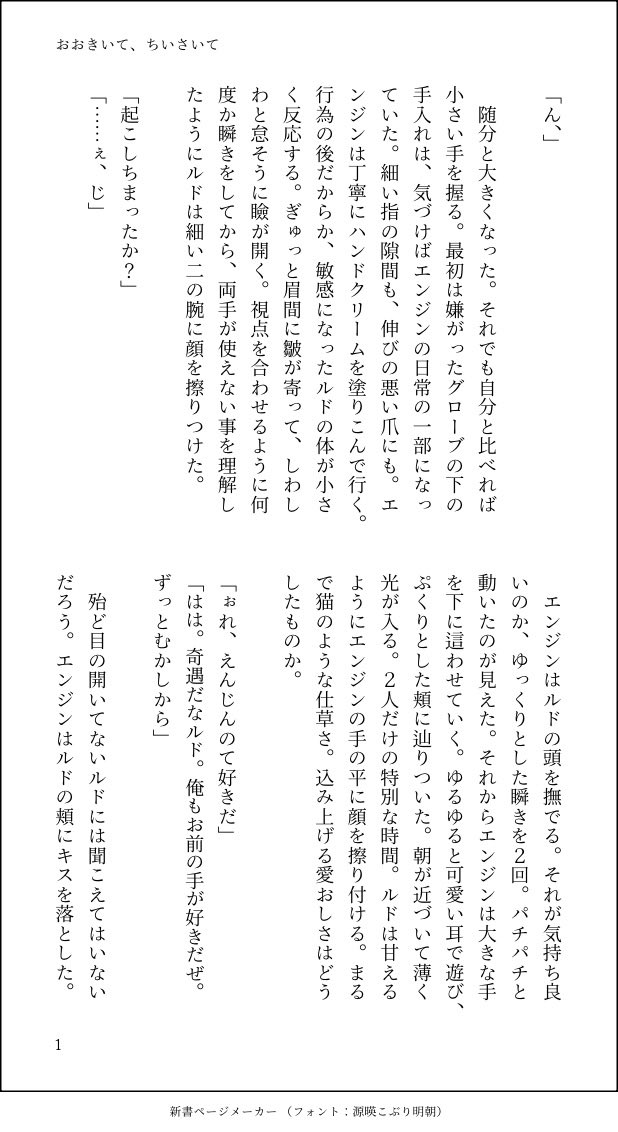 おおきいて、ちいさいて
「ん、」
　随分と大きくなった。それでも自分と比べれば
小さい手を握る。最初は嫌がったグローブの下の
手入れは、気づけばエンジンの日常の一部になっ
ていた。細い指の隙間も、伸びの悪い爪にも。エ
ンジンは丁寧にハンドクリームを塗りこんで行く。
行為の後だからか、敏感になったルドの体が小さ
く反応する。ぎゅっと眉間に皺が寄って、しわし
わと怠そうに瞼が開く。視点を合わせるように何
度か瞬きをしてから、両手が使えない事を理解し
たようにルドは細い二の腕に顔を擦りつけた。
「起こしちまったか？」
「……ぇ、じ」
　エンジンはルドの頭を撫でる。それが気持ち良
いのか、ゆっくりとした瞬きを２回。パチパチと
動いたのが見えた。それからエンジンは大きな手
を下に這わせていく。ゆるゆると可愛い耳で遊び、
ぷくりとした頬に辿りついた。朝が近づいて薄く
光が入る。２人だけの特別な時間。ルドは甘える
ようにエンジンの手の平に顔を擦り付ける。まる
で猫のような仕草さ。込み上げる愛おしさはどう
したものか。
「ぉれ、えんじんのて好きだ」
「はは。奇遇だなルド。俺もお前の手が好きだぜ。
ずっとむかしから」
　殆ど目の開いてないルドには聞こえてはいない
だろう。エンジンはルドの頬にキスを落とした。
1
新書ページメーカー（フォント：源暎こぶり明朝）